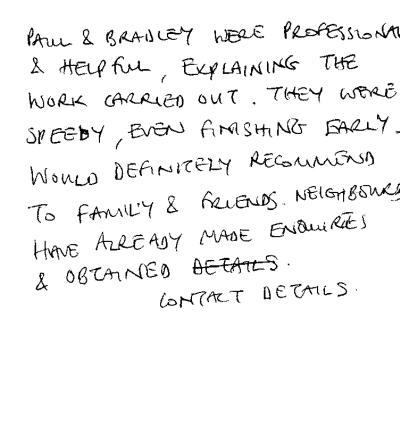 PAUL & BRADLEY WERE PROFESSIONAL
& HELPFUL, EXPLAINING THE
WORK CARRIED OUT. THEY WERE
SPEEDY, EVEN FINISHING EARLY.
WOULD DEFINITELY RECOMMEND
TO FAMILY & FRIENDS. NEIGHBOURS
HAVE ALREADY MADE ENQUIRIES
& OBTAINED DETAILS.
CONTACT DETAILS.